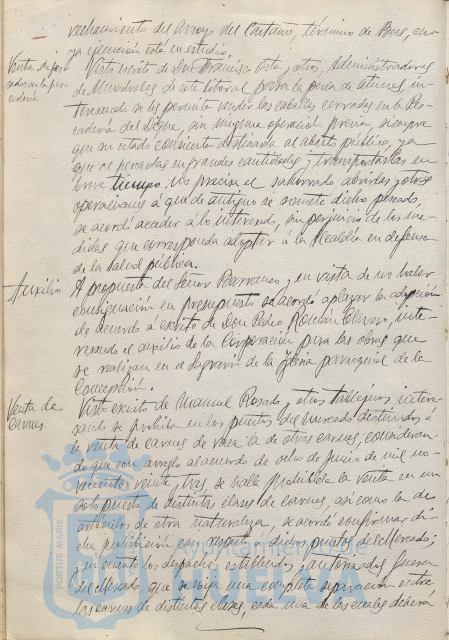 vechamiento del Arroyo del Castaño, término de Beas, cu-
ya ejecución está en estudio.
Venta de pes-
cado en la pes-
cadería
Visto escrito de Don Francisco Orta y otros, Administradores
de Almadrabas de este litoral para la pesca de atunes, in-
teresando se les permita vender las caballas cerradas en la Pes-
cadería del Dique, sin ninguna operación previa, siempre
que su estado consienta destinarla al abasto público, ya
que al pescarlas en grandes cantidades y transportarlas en
breve tiempo no precisa el salmorado abrirlas y otras
operaciones a que de antiguo se somete dicho pescado,
se acordó acceder a lo interesado, sin perjuicio de las me-
didas que corresponda adoptar á la Alcaldía en defensa
de la salud pública.
Auxilio
A propuesta del Señor Barranco, y en vista de no haber
consignación en presupuesto se acordó aplazar la adopción
de acuerdo á escrito de Don Pedro Román Clavero, inte-
resando el auxilio de la Corporación para las obras que
se realizan en el Sagrario de la Iglesia parroquial de la
Concepción.
Venta de
carnes
Visto escrito de Manuel Rosado y otros tablajeros intere-
sando se prohiba en los puestos del mercado destinados á
la venta de carnes de vaca la de otras carnes, consideran-
do que con arreglo al acuerdo de ocho de Junio de mil no-
vecientos veinte y tres, se halla prohibida la venta en un
solo puesto de distintas clases de carnes, asi como la de
artículos de otra naturaleza, se acordó confirmar di-
cha prohibición con respecto a dichos puestos del Mercado;
y en cuanto los despachos establecidos y autorizados fuera
del Mercado, que se exija una completa separación entre
las carnes de distintas clases, cada una de las cuales deberá
PORTUS MARIS
Ayuntamiento de
HUELVA